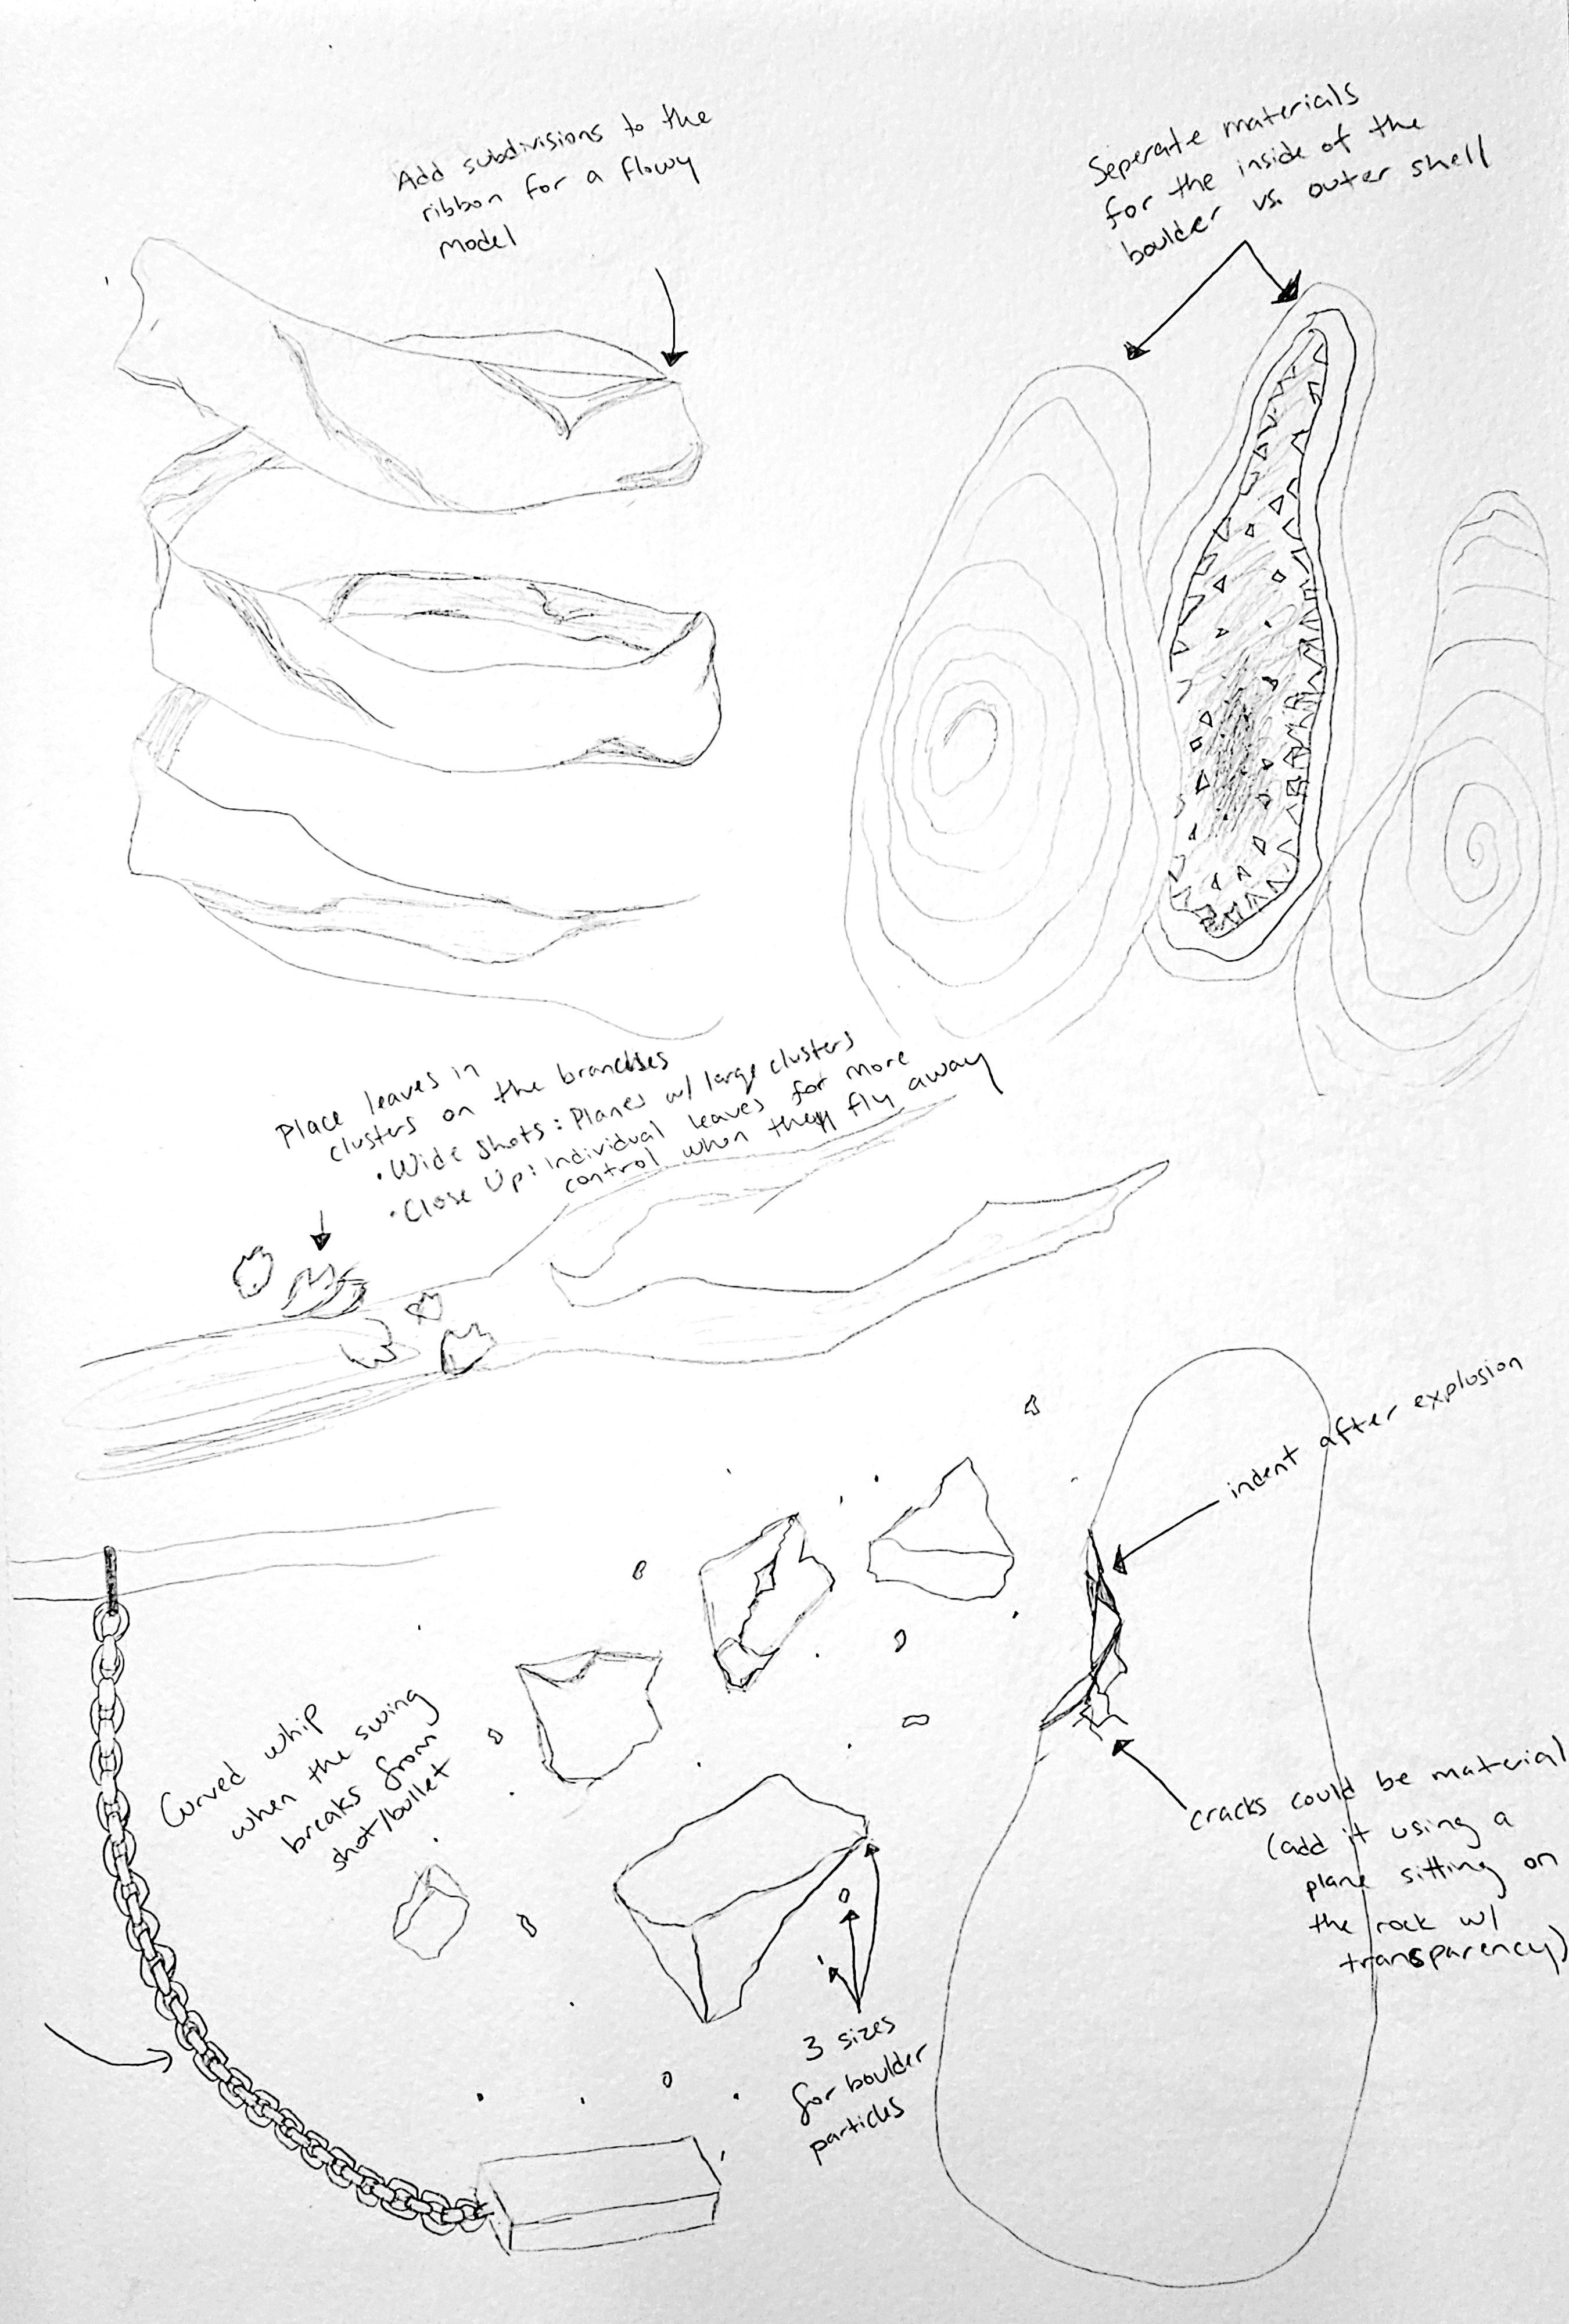 Add subdivisions to the
ribbon for a flowy
model
Seperate materials
for the inside of the
boulder vs. outer shell
Place leaves in
clusters on the branches
• Wide Shots: Planes w/ large clusters
• Close Up: Individual leaves for more
control when they fly away
indent after explosion
Curved whip
when the swing
breaks from
shot/bullet
cracks could be material
(add it using a
plane sitting on
the rock w/
transparency)
3 sizes
for boulder
particles